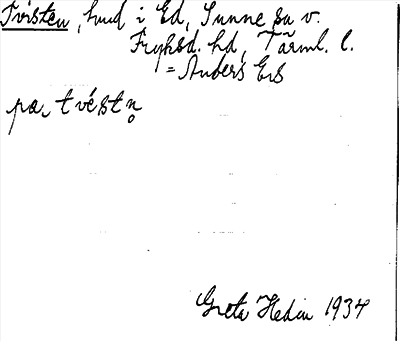 Tvisten, hmd i Ed, Sunne sn v.
Fryksd. hd, Värml. l.
= Anders Ers
pa, tvéstn̥
Greta Hedin 1934